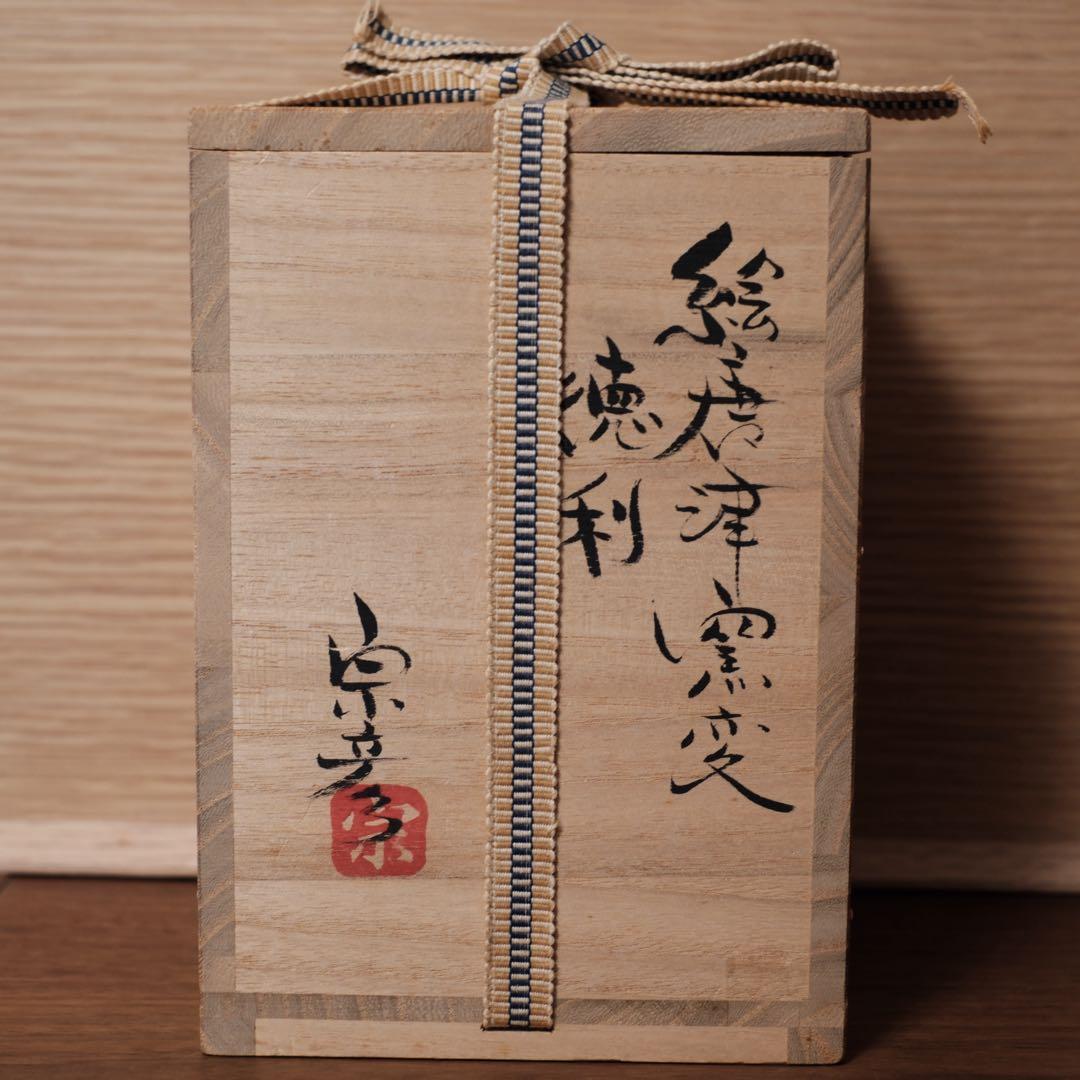 絵唐津窯変
徳利
宗